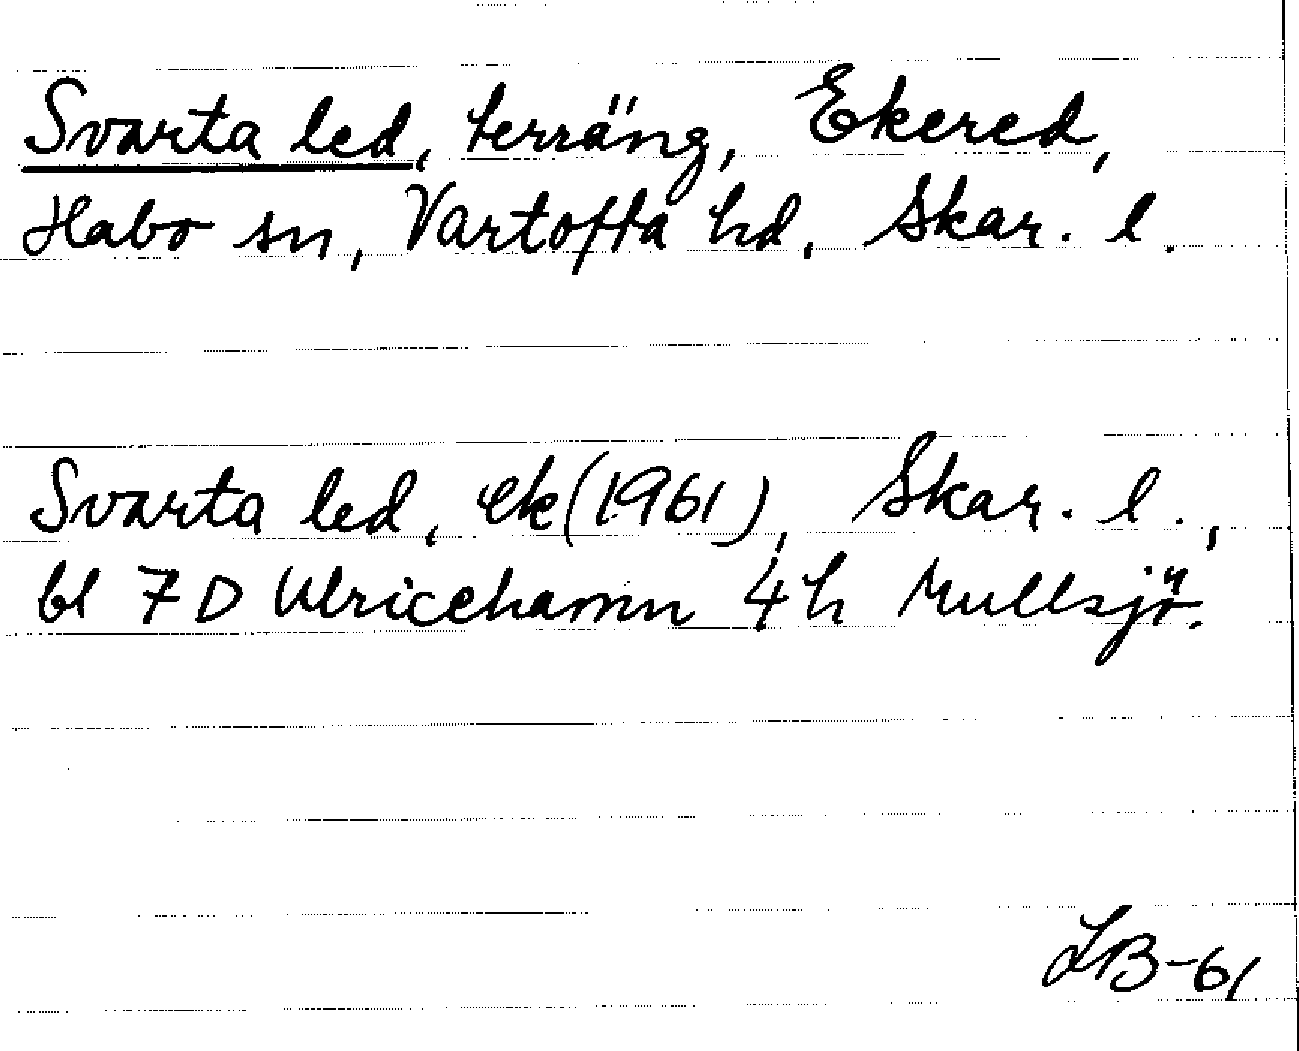 Svarta led, terräng, Ekered,
Habo sn, Vartofta hd, Skar. l.
Svarta led, ek (1961), Skar. l.,
bl 7D Ulricehamn 4h Mullsjö.
LB-61